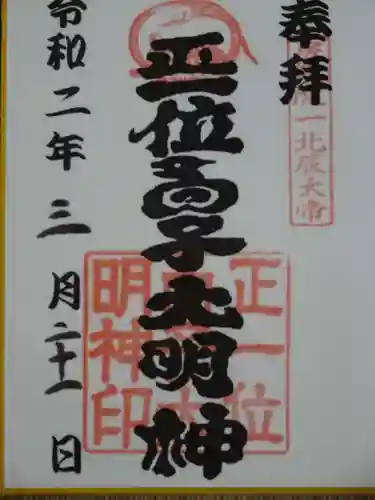 奉拝
一北辰大帝
正一位高子大明神
正一位
高子大
明神印
令和二年三月二十一日